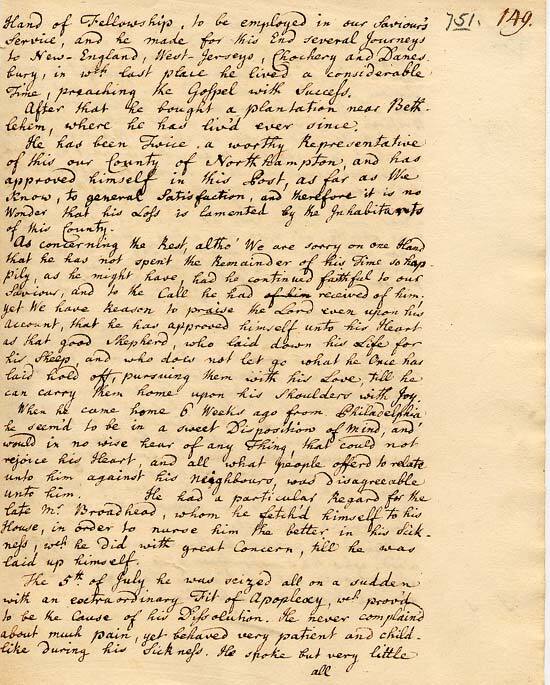 751. 149.
Hand of Fellowship, to be employed in our Saviour's
Service, and he made for this End several Journeys
to New-England, West-Jerseys, Chochery and Danes
bury, in wch last place he lived a considerable
Time, preaching the Gospel with Success.
After that he bought a plantation near Beth-
lehem, where he has liv'd ever since.
He has been Twice a worthy Representative
of this our County of Northhampton, and has
approved himself in this Post, as far as We
know, to general Satisfaction, and therefore it is no
Wonder that his Loss is lamented by the Inhabitants
of this County.
As concerning the Rest, altho' We are sorry on one Hand
that he has not spent the Remainder of his Time so hap
pily, as he might have, had he continued faithful to our
Saviour, and to the Call he had of him received of him;
yet We have Reason to praise the Lord even upon his
Account, that he has approved himself unto his Heart
as that good Shepherd, who laid down his Life for
his Sheep, and who does not let go what he Once has
laid hold off, pursuing them with his Love, till he
can carry them home upon his Shoulders with Joy.
When he came home 6 Weeks ago from Philadelphia
he seem'd to be in a sweet Disposition of Mind, and
would in no wise hear of any Thing, that could not
rejoice his Heart, and all what people offerd to relate
unto him against his neighbours, was disagreeable
unto him. He had a particular Regard for the
late Mr. Broadhead, whom he fetch'd himself to his
House, in order to nurse him the better in his Sick-
ness, wch he did with great Concern, till he was
laid up himself.
The 5th of July he was seized all on a sudden
with an extraordinary Fit of Apoplexy, wch prov'd
to be the Cause of his Dissolution. He never complaind
about much pain, yet behaved very patient and child-
like during his Sickness. He spoke but very little
all